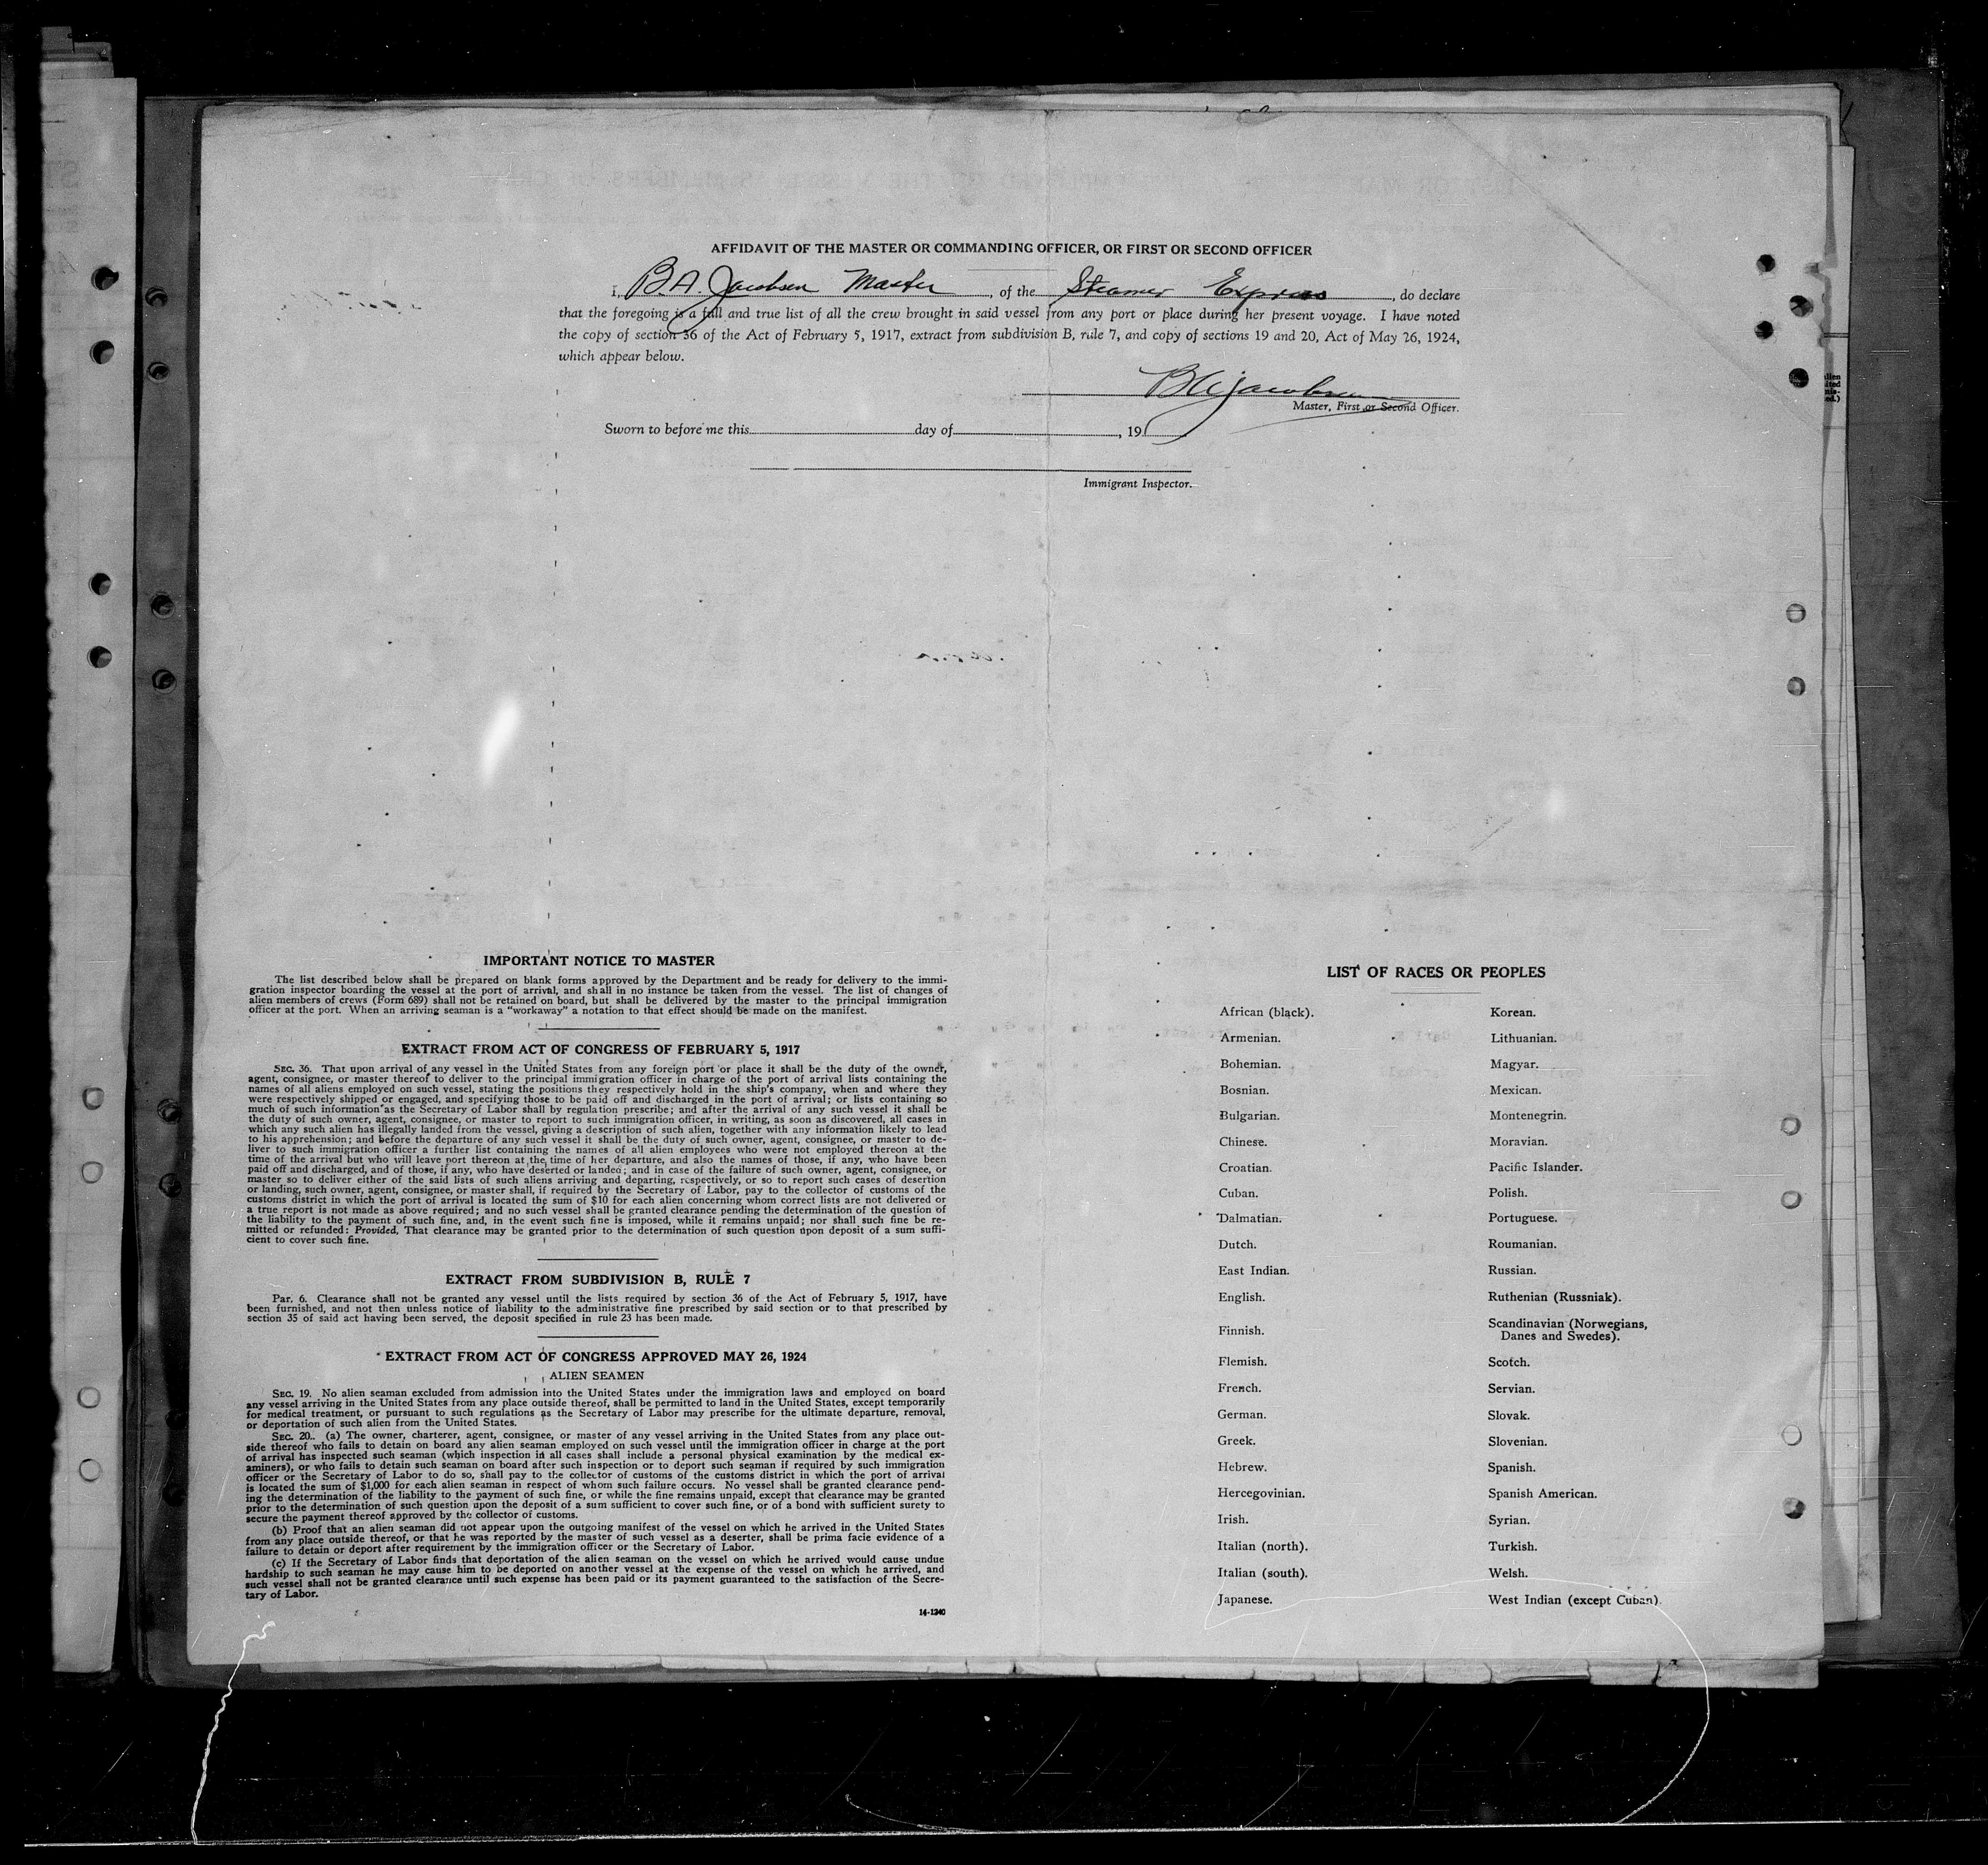 AFFIDAVIT OF THE MASTER OR COMMANDING OFFICER, OR FIRST OR SECOND OFFICER
I, B. A. Jacobsen Master, of the Steamer Express, do declare
that the foregoing is a full and true list of all the crew brought in said vessel from any port or place during her present voyage. I have noted
the copy of section 36 of the Act of February 5, 1917, extract from subdivision B, rule 7, and copy of sections 19 and 20, Act of May 26, 1924,
which appear below.
B A Jacobsen
Master, First or Second Officer.
Sworn to before me this day of , 19
Immigrant Inspector.
IMPORTANT NOTICE TO MASTER
The list described below shall be prepared on blank forms approved by the Department and be ready for delivery to the immi-
gration inspector boarding the vessel at the port of arrival, and shall in no instance be taken from the vessel. The list of changes of
alien members of crews (Form 689) shall not be retained on board, but shall be delivered by the master to the principal immigration
officer at the port. When an arriving seaman is a "workaway" a notation to that effect should be made on the manifest.
EXTRACT FROM ACT OF CONGRESS OF FEBRUARY 5, 1917
SEC. 36. That upon arrival of any vessel in the United States from any foreign port or place it shall be the duty of the owner,
agent, consignee, or master thereof to deliver to the principal immigration officer in charge of the port of arrival lists containing the
names of all aliens employed on such vessel, stating the positions they respectively hold in the ship's company, when and where they
were respectively shipped or engaged, and specifying those to be paid off and discharged in the port of arrival; or lists containing so
much of such information as the Secretary of Labor shall by regulation prescribe; and after the arrival of any such vessel it shall be
the duty of such owner, agent, consignee, or master to report to such immigration officer, in writing, as soon as discovered, all cases in
which any such alien has illegally landed from the vessel, giving a description of such alien, together with any information likely to lead
to his apprehension; and before the departure of any such vessel it shall be the duty of such owner, agent, consignee, or master to de-
liver to such immigration officer a further list containing the names of all alien employees who were not employed thereon at the
time of the arrival but who will leave port thereon at the time of her departure, and also the names of those, if any, who have been
paid off and discharged, and of those, if any, who have deserted or landed; and in case of the failure of such owner, agent, consignee, or
master so to deliver either of the said lists of such aliens arriving and departing, respectively, or so to report such cases of desertion
or landing, such owner, agent, consignee, or master shall, if required by the Secretary of Labor, pay to the collector of customs of the
customs district in which the port of arrival is located the sum of $10 for each alien concerning whom correct lists are not delivered or
a true report is not made as above required; and no such vessel shall be granted clearance pending the determination of the question of
the liability to the payment of such fine, and, in the event such fine is imposed, while it remains unpaid; nor shall such fine be re-
mitted or refunded: Provided, That clearance may be granted prior to the determination of such question upon deposit of a sum suffi-
cient to cover such fine.
EXTRACT FROM SUBDIVISION B, RULE 7
Par. 6. Clearance shall not be granted any vessel until the lists required by section 36 of the Act of February 5, 1917, have
been furnished, and not then unless notice of liability to the administrative fine prescribed by said section or to that prescribed by
section 35 of said act having been served, the deposit specified in rule 23 has been made.
EXTRACT FROM ACT OF CONGRESS APPROVED MAY 26, 1924
ALIEN SEAMEN
SEC. 19. No alien seaman excluded from admission into the United States under the immigration laws and employed on board
any vessel arriving in the United States from any place outside thereof, shall be permitted to land in the United States, except temporarily
for medical treatment, or pursuant to such regulations as the Secretary of Labor may prescribe for the ultimate departure, removal,
or deportation of such alien from the United States.
SEC. 20. (a) The owner, charterer, agent, consignee, or master of any vessel arriving in the United States from any place out-
side thereof who fails to detain on board any alien seaman employed on such vessel until the immigration officer in charge at the port
of arrival has inspected such seaman (which inspection in all cases shall include a personal physical examination by the medical ex-
aminers), or who fails to detain such seaman on board after such inspection or to deport such seaman if required by such immigration
officer or the Secretary of Labor to do so, shall pay to the collector of customs of the customs district in which the port of arrival
is located the sum of $1,000 for each alien seaman in respect of whom such failure occurs. No vessel shall be granted clearance pend-
ing the determination of the liability to the payment of such fine, or while the fine remains unpaid, except that clearance may be granted
prior to the determination of such question upon the deposit of a sum sufficient to cover such fine, or of a bond with sufficient surety to
secure the payment thereof approved by the collector of customs.
(b) Proof that an alien seaman did not appear upon the outgoing manifest of the vessel on which he arrived in the United States
from any place outside thereof, or that he was reported by the master of such vessel as a deserter, shall be prima facie evidence of a
failure to detain or deport after requirement by the immigration officer or the Secretary of Labor.
(c) If the Secretary of Labor finds that deportation of the alien seaman on the vessel on which he arrived would cause undue
hardship to such seaman he may cause him to be deported on another vessel at the expense of the vessel on which he arrived, and
such vessel shall not be granted clearance until such expense has been paid or its payment guaranteed to the satisfaction of the Secre-
tary of Labor.
14-1240
LIST OF RACES OR PEOPLES
African (black).
Armenian.
Bohemian.
Bosnian.
Bulgarian.
Chinese.
Croatian.
Cuban.
Dalmatian.
Dutch.
East Indian.
English.
Finnish.
Flemish.
French.
German.
Greek.
Hebrew.
Hercegovinian.
Irish.
Italian (north).
Italian (south).
Japanese.
Korean.
Lithuanian.
Magyar.
Mexican.
Montenegrin.
Moravian.
Pacific Islander.
Polish.
Portuguese.
Roumanian.
Russian.
Ruthenian (Russniak).
Scandinavian (Norwegians,
Danes and Swedes).
Scotch.
Servian.
Slovak.
Slovenian.
Spanish.
Spanish American.
Syrian.
Turkish.
Welsh.
West Indian (except Cuban).